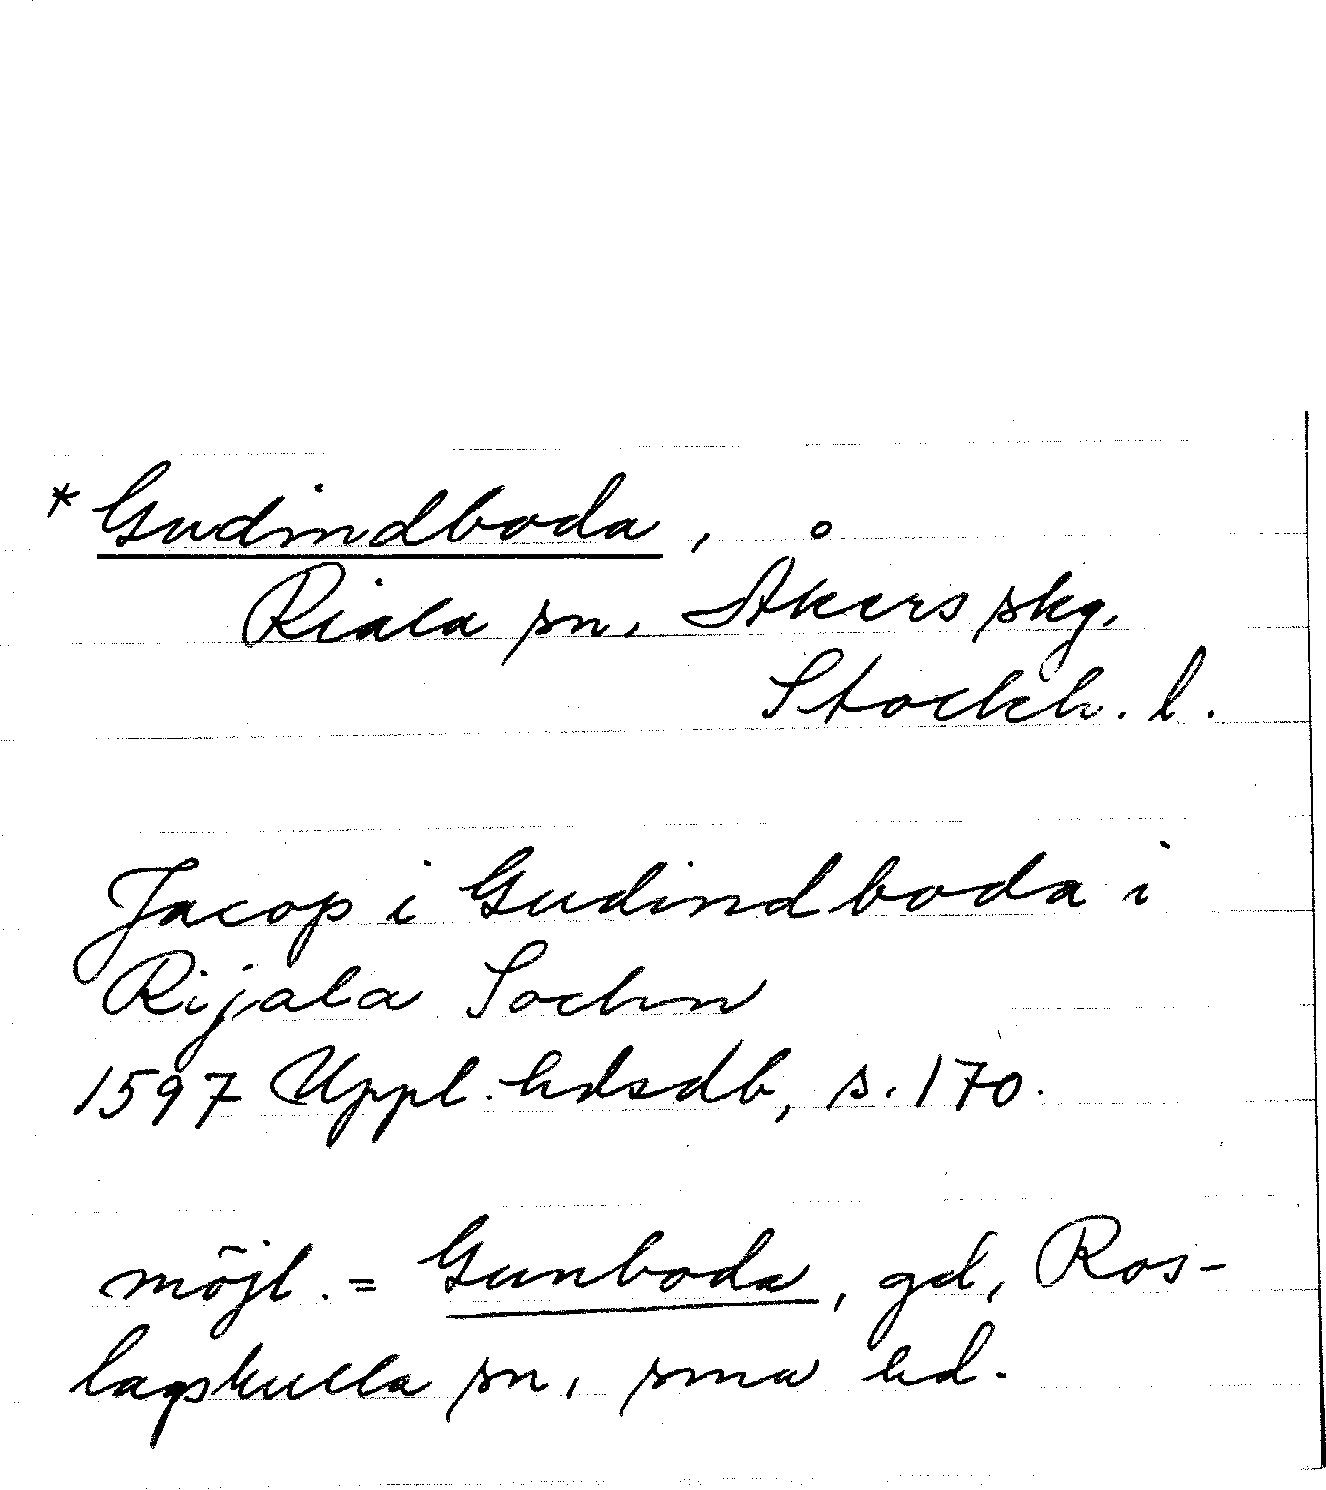 *Gudindboda,
Riala sn, Åkers skg,
Stockh. l.
Jacop i Gudindboda i
Rijala Sochn
1597 Uppl. hdsdb, s. 170.
möjl. = Gunboda, gd, Ros-
lagskulla sn, sma hd.